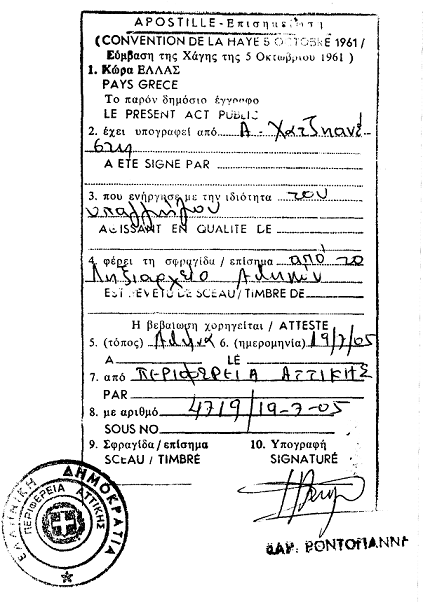 APOSTILLE-Επισημείωση
(CONVENTION DE LA HAYE 5 OCTOBRE 1961/
Σύμβαση της Χάγης της 5 Οκτωβρίου 1961)
1. Χώρα ΕΛΛΑΣ
PAYS GRECE
Το παρόν δημόσιο έγγραφο
LE PRESENT ACT PUBLIC
2. έχει υπογραφεί από Α.
A ETE SIGNE PAR
3. που ενήργησε με την ιδιότητα του
υπαλλήλου
AGISSANT EN QUALITE DE
4. φέρει τη σφραγίδα / επίσημα από το
Ληξιαρχείο Αθηνών
EST REVETU DE SCEAU / TIMBRE DE
Η βεβαίωση χορηγείται / ATTESTE
5. (τόπος) Αθήνα 6. (ημερομηνία) 19/7/05
A LE
7. από ΠΕΡΙΦΕΡΕΙΑ ΑΤΤΙΚΗΣ
PAR
8. με αριθμό 4719/19-7-05
SOUS NO
9. Σφραγίδα / επίσημα 10. Υπογραφή
SCEAU / TIMBRÉ SIGNATURÉ
ΕΛΛΗΝΙΚΗ ΔΗΜΟΚΡΑΤΙΑ
ΠΕΡΙΦΕΡΕΙΑ ΑΤΤΙΚΗΣ
ΡΟΝΤΟΓΙΑΝΝΗ